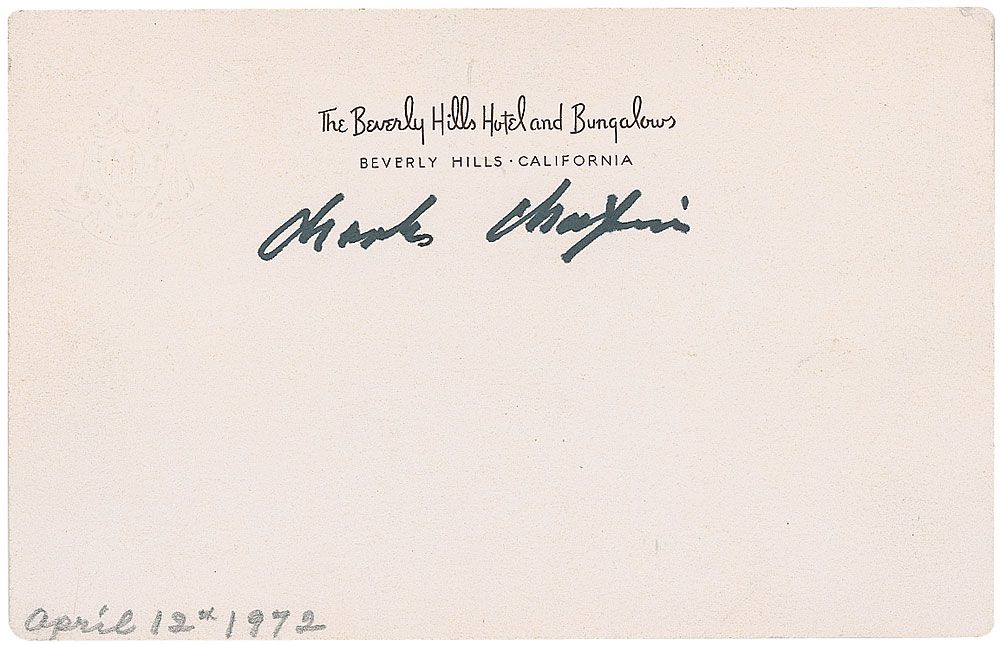 The Beverly Hills Hotel and Bungalows
BEVERLY HILLS · CALIFORNIA
Charles Chaplin
April 12th 1972